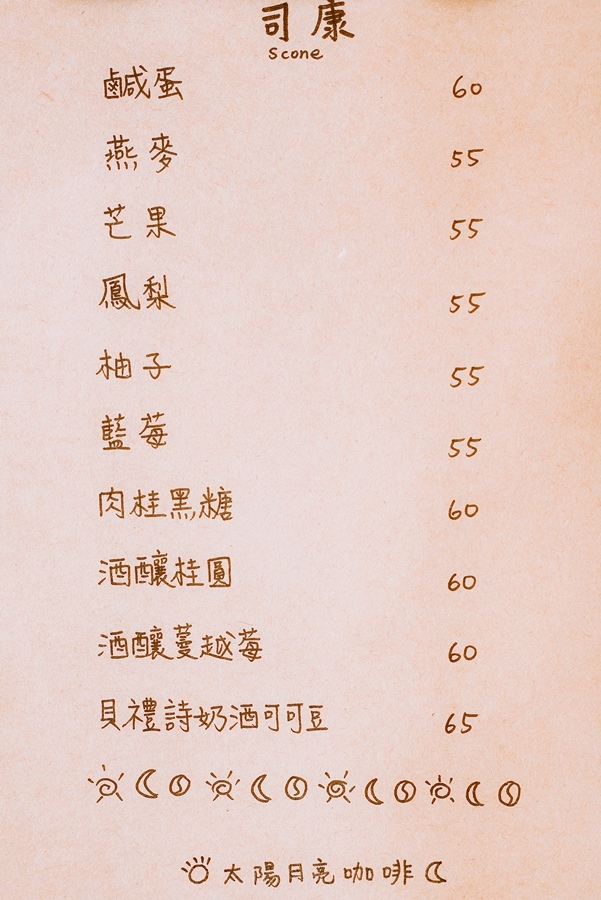 司康
Scone
鹹蛋 60
燕麥 55
芒果 55
鳳梨 55
柚子 55
藍莓 55
肉桂黑糖 60
酒釀桂圓 60
酒釀蔓越莓 60
貝禮詩奶酒可可豆 65
太陽月亮咖啡